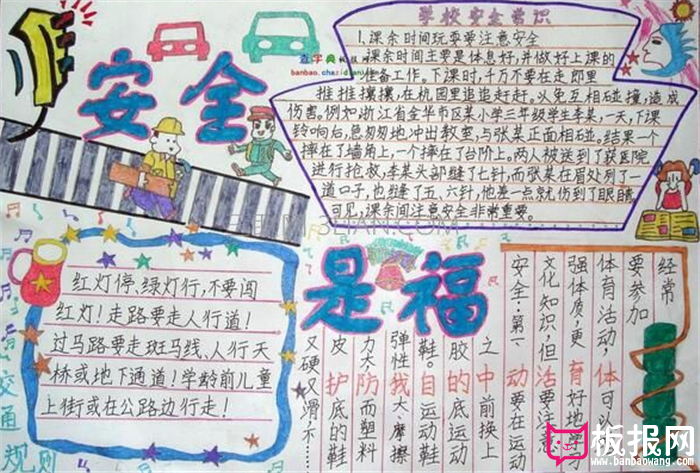 安全
查字典
banbao.chazidian
学校安全常识
1.课余时间玩耍要注意安全
课余时间主要是休息好,并做好上课的
准备工作。下课时,千万不要在走郎里
推推攘攘,在校园里追追赶赶。以免互相碰撞,造成
伤害。例如浙江省金华市区某小学三年级学生李某,一天,下课
铃响后,急匆匆地冲出教室,与张某正面相碰。结果一个
摔在了墙角上,一个摔在了台阶上。两人被送到了获医院
进行抢救,李某头部缝了七针,而张某在眉处列了一
道口子,也缝了五、六针,他差一点就伤到了眼睛
可见,课余间注意安全非常重要。
红灯停、绿灯行,不要闯
红灯!走路要走人行道!
过马路要走斑马线、人行天
桥或地下通道!学龄前儿童
上街或在公路边行走!
交通规则
是福
经常
要参加
体育活动,体可以
强体质,更育好地学
文化知识,但活要注意
安全第一动要在运动
之中前换上
胶的底运动
鞋。自运动鞋
弹性我大、摩擦
力大,防而塑料
皮护底的鞋
又硬又滑,不……
板报网
www.banbaowang.com